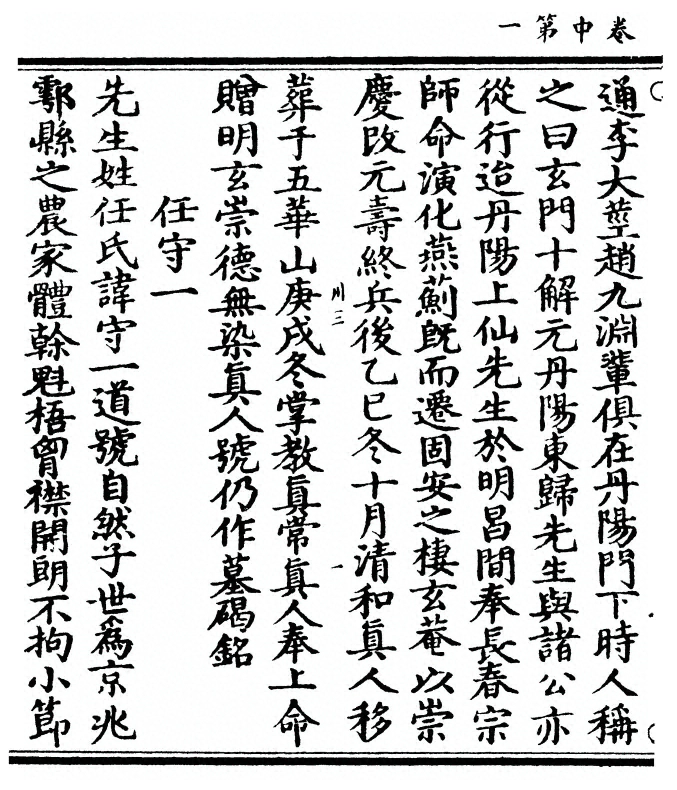 卷中第一
通李大莖趙九淵輩俱在丹陽門下時人稱
之曰玄門十解元丹陽東歸先生與諸公亦
從行迨丹陽上仙先生於明昌間奉長春宗
師命演化燕薊旣而遷固安之棲玄菴以崇
慶改元壽終兵後乙巳冬十月清和眞人移
川三
一
葬于五華山庚戌冬掌教眞常眞人奉上命
贈明玄崇德無染眞人號仍作墓碣銘
任守一
先生姓任氏諱守一道號自然子世爲京兆
鄠縣之農家體幹魁梧胷襟開朗不拘小節